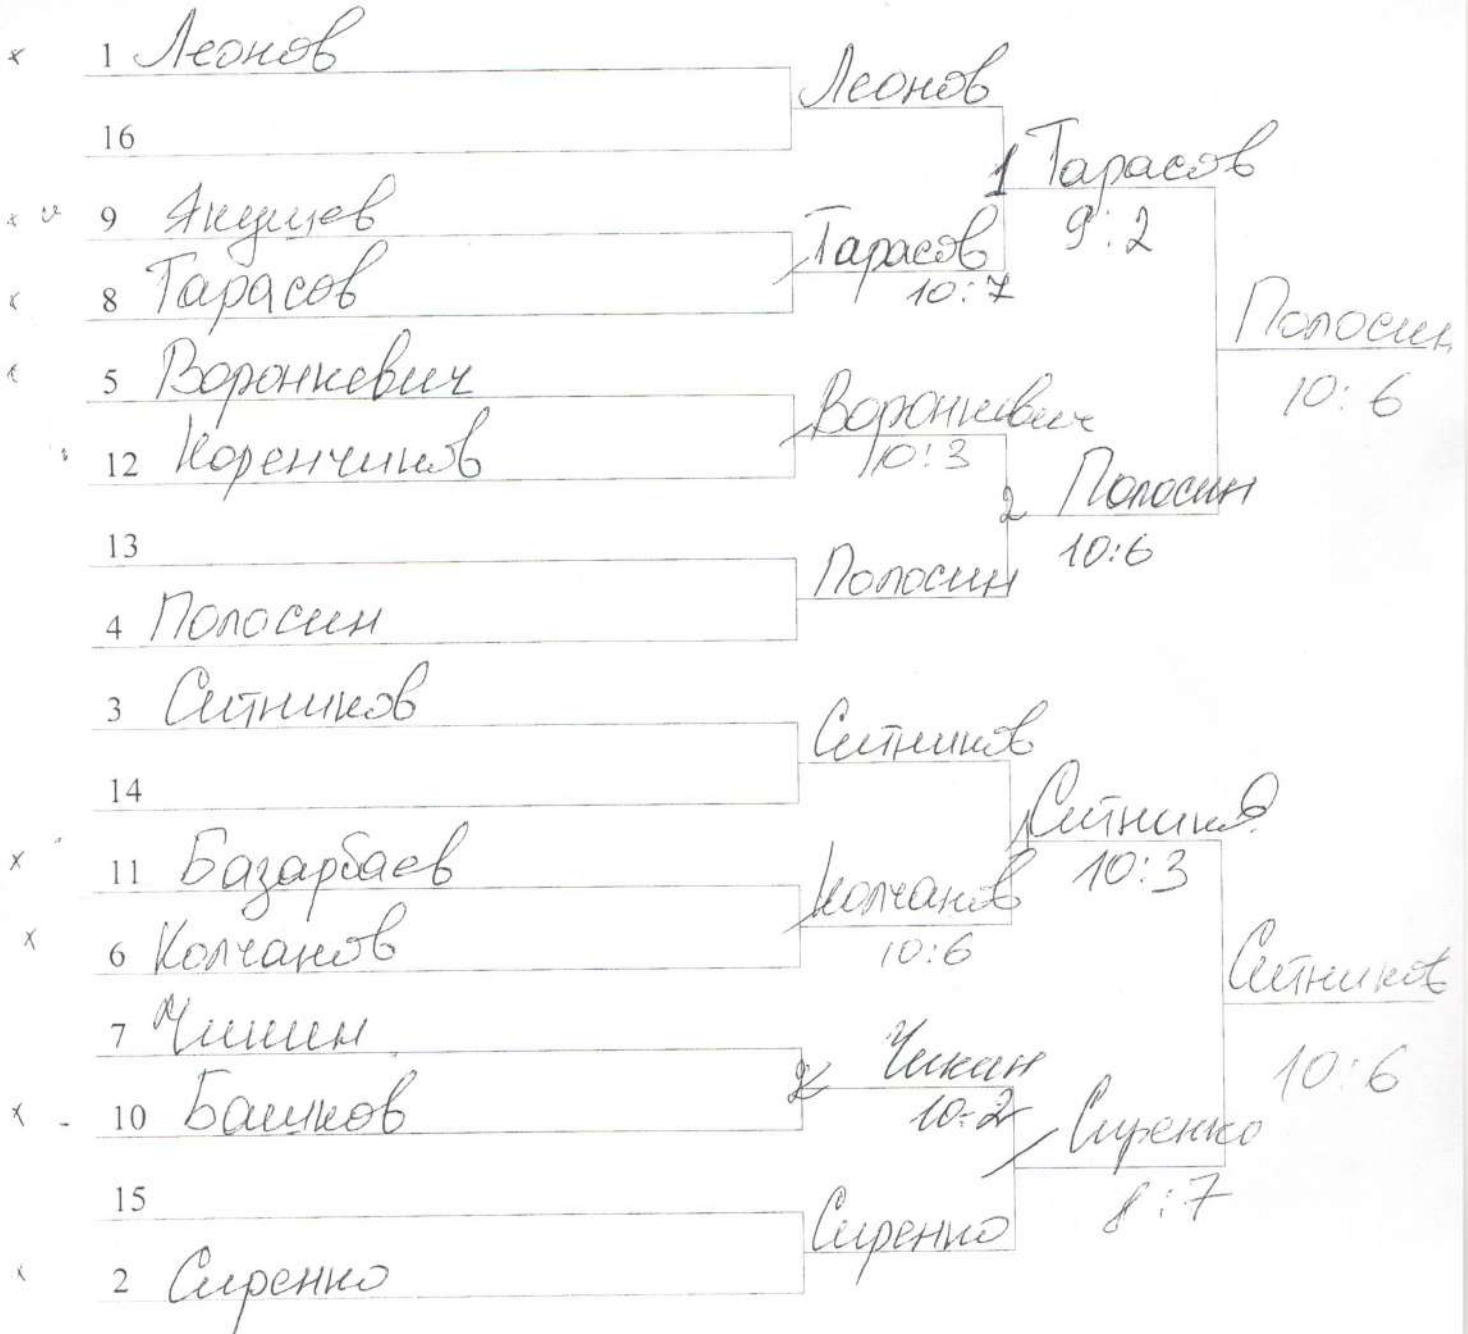 1 Леонов
16
9 Якушев
8 Тарасов
5 Воронкевич
12 Коренчиков
13
4 Полосин
3 Ситников
14
11 Базарбаев
6 Колчанов
7 Чикин
10 Башков
15
2 Сиренко
Леонов
Тарасов
10:7
Воронкевич
10:3
Полосин
Ситников
Колчанов
10:6
Чикин
10:2
Сиренко
1 Тарасов
9:2
2 Полосин
10:6
Ситников
10:3
Сиренко
8:7
Полосин
10:6
Ситников
10:6